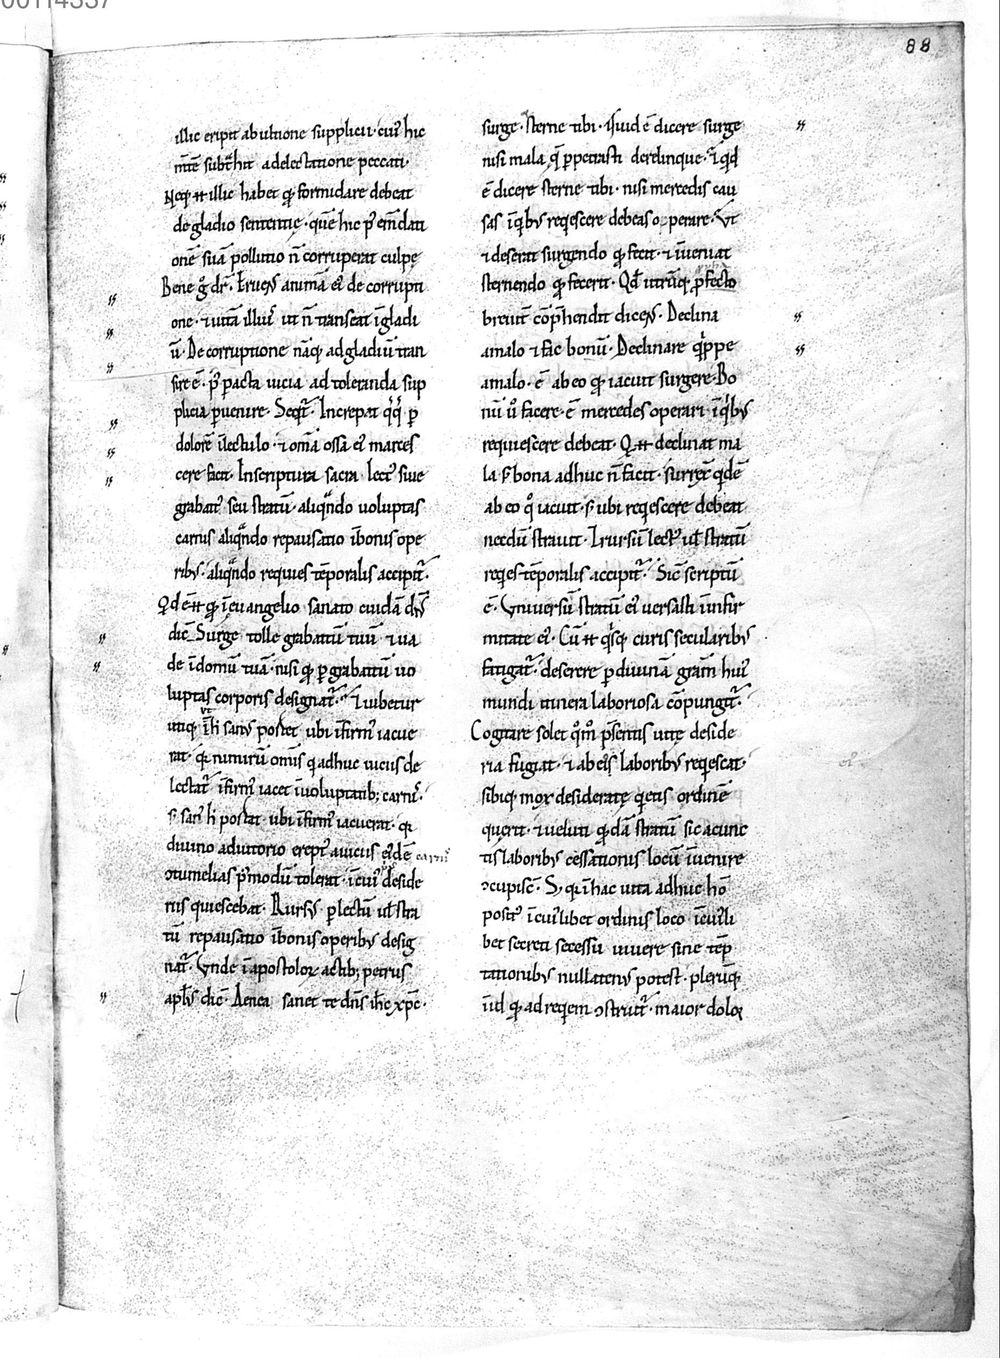 00114337
88
illic eripit ab ultione supplicii· cui᷒ hic
mtē subt̄hit a delectatione peccati·
Neq; .n. illic habet q̧ formidare debeat
de gladio sententie· quē hic p᷒ em̄dati
onē suā pollutio n̄ corruperat culpę
Bene g° dr̄· Eruens animā ei᷒ de corrupti
one· ⁊ uitā illius ut n̄ transeat ī gladi
ū· De corruptione nāq; ad gladiū tran
sire ē· p᷒ pacta uicia ad toleranda sup
plicia puenire· Seqt̄· Increpat q̇q̇ p
dolorē ī lectulo· ⁊ om̄a ossa ei᷒ marces
cere facit· In scriptura sacra lect᷒ siue
grabat᷒ seu stratū· aliqn̄do uoluptas
carnis aliqn̄do repausatio ī bonis ope
rib᷒· aliqn̄do requies tēporalis accipit̄·
Qd ē .n. q̧ ī euangelio sanato cuidā dn̄s
dic̄ Surge tolle grabattū tuū ⁊ ua
de ī domū tuā· nisi q̧ p grabattū uo
luptas corporis designat̄· Et iubetur
utiq; ut h̄ san᷒ portet ubi īfirm᷒ iacue
rat· q̧ nimirū om̄is q adhuc uiciis de
lectat̄ īfirm᷒ iacet ī uoluptatib; carnis·
s; san᷒ h̄ portat ubi īfirm᷒ iacuerat· q̧
diuino adiutorio erept᷒ a uiciis ei᷒dē carnis
ɔtumelias p᷒modū tolerat· ī cui᷒ deside
riis quiescebat· Rursus p lectū ul̄ stra
tū repausatio ī bonis operib᷒ desig
nat̄· Vnde ī apostoloꝝ actib; petrus
apl̄s dic̄· Aenea sanet te dn̄s ih̄c xpc̄·
surge· sterne tibi· Quid ē dicere surge
nisi mala q̄ ppetrasti derelinque· ⁊ qd
ē dicere sterne tibi· nisi mercedis cau
sas ī qib᷒ reqescere debeas operare· Vt
⁊ deserat surgendo q̧ fecit· ⁊ īueniat
sternendo q̧ fecerit· Qd̄ utrūq; pfecto
breuit̄ cōp̄hendit dicens· Declina
a malo ⁊ fac bonū· Declinare qippe
a malo· ē ab eo q̧ iacuit surgere· Bo
nū u᷒ facere· ē mercedes operari· ī qib᷒
requiescere debeat· Q .n. declinat ma
la s; bona adhuc n̄ facit· surrex̄ qdē
ab eo q° iacuit· s; ubi reqescere debeat
necdū strauit· Rursū lect᷒ ul̄ stratū
reqes tēporalis accipit̄· Sic̄ scriptū
ē· Vniuersū stratū ei᷒ uersasti ī infir
mitate ei᷒· Cū .n. qsq; curis secularib᷒
fatigat̄· deserere p diuinā gram̄ hui᷒
mundi itinera laboriosa cōpungit̄·
Cogitare solet qm̄ p̄sentis uitę deside
ria fugiat· ⁊ ab eis laborib᷒ reqescat·
sibiq; mox desideratę qetis ordinē
querit· ⁊ ueluti q̧dā stratū sic a cunc
tis laborib᷒ cessationis locū īuenire
ɔcupisc̄· S; q̧ ī hac uita adhuc hō
posit᷒ ī cui᷒libet ordinis loco ī cui᷒li
bet secreti secessu uiuere sine tēp
tationib᷒ nullaten᷒ potest· plerūq;
īid q̧ ad reqem ɔstruit̄· maior doloꝝ